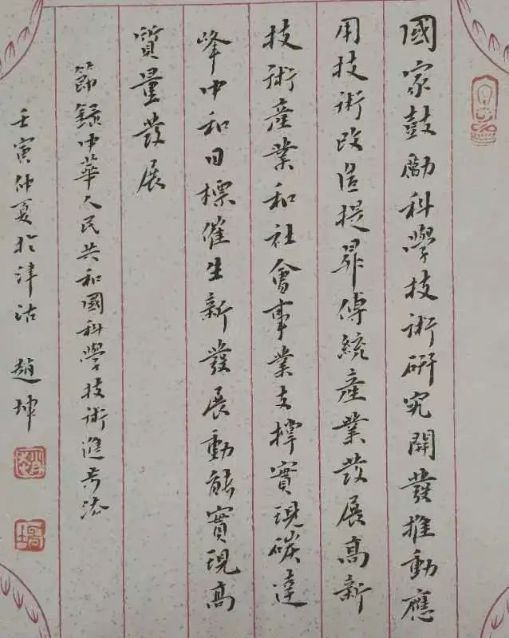 國家鼓勵科學技術研究開發推動應
用技術改造提昇傳統產業發展高新
技術產業和社會事業支撐實現碳達
峰中和目標催生新發展動能實現高
質量發展
節錄中華人民共和國科學技術進步法
壬寅仲夏於津沽 趙坤